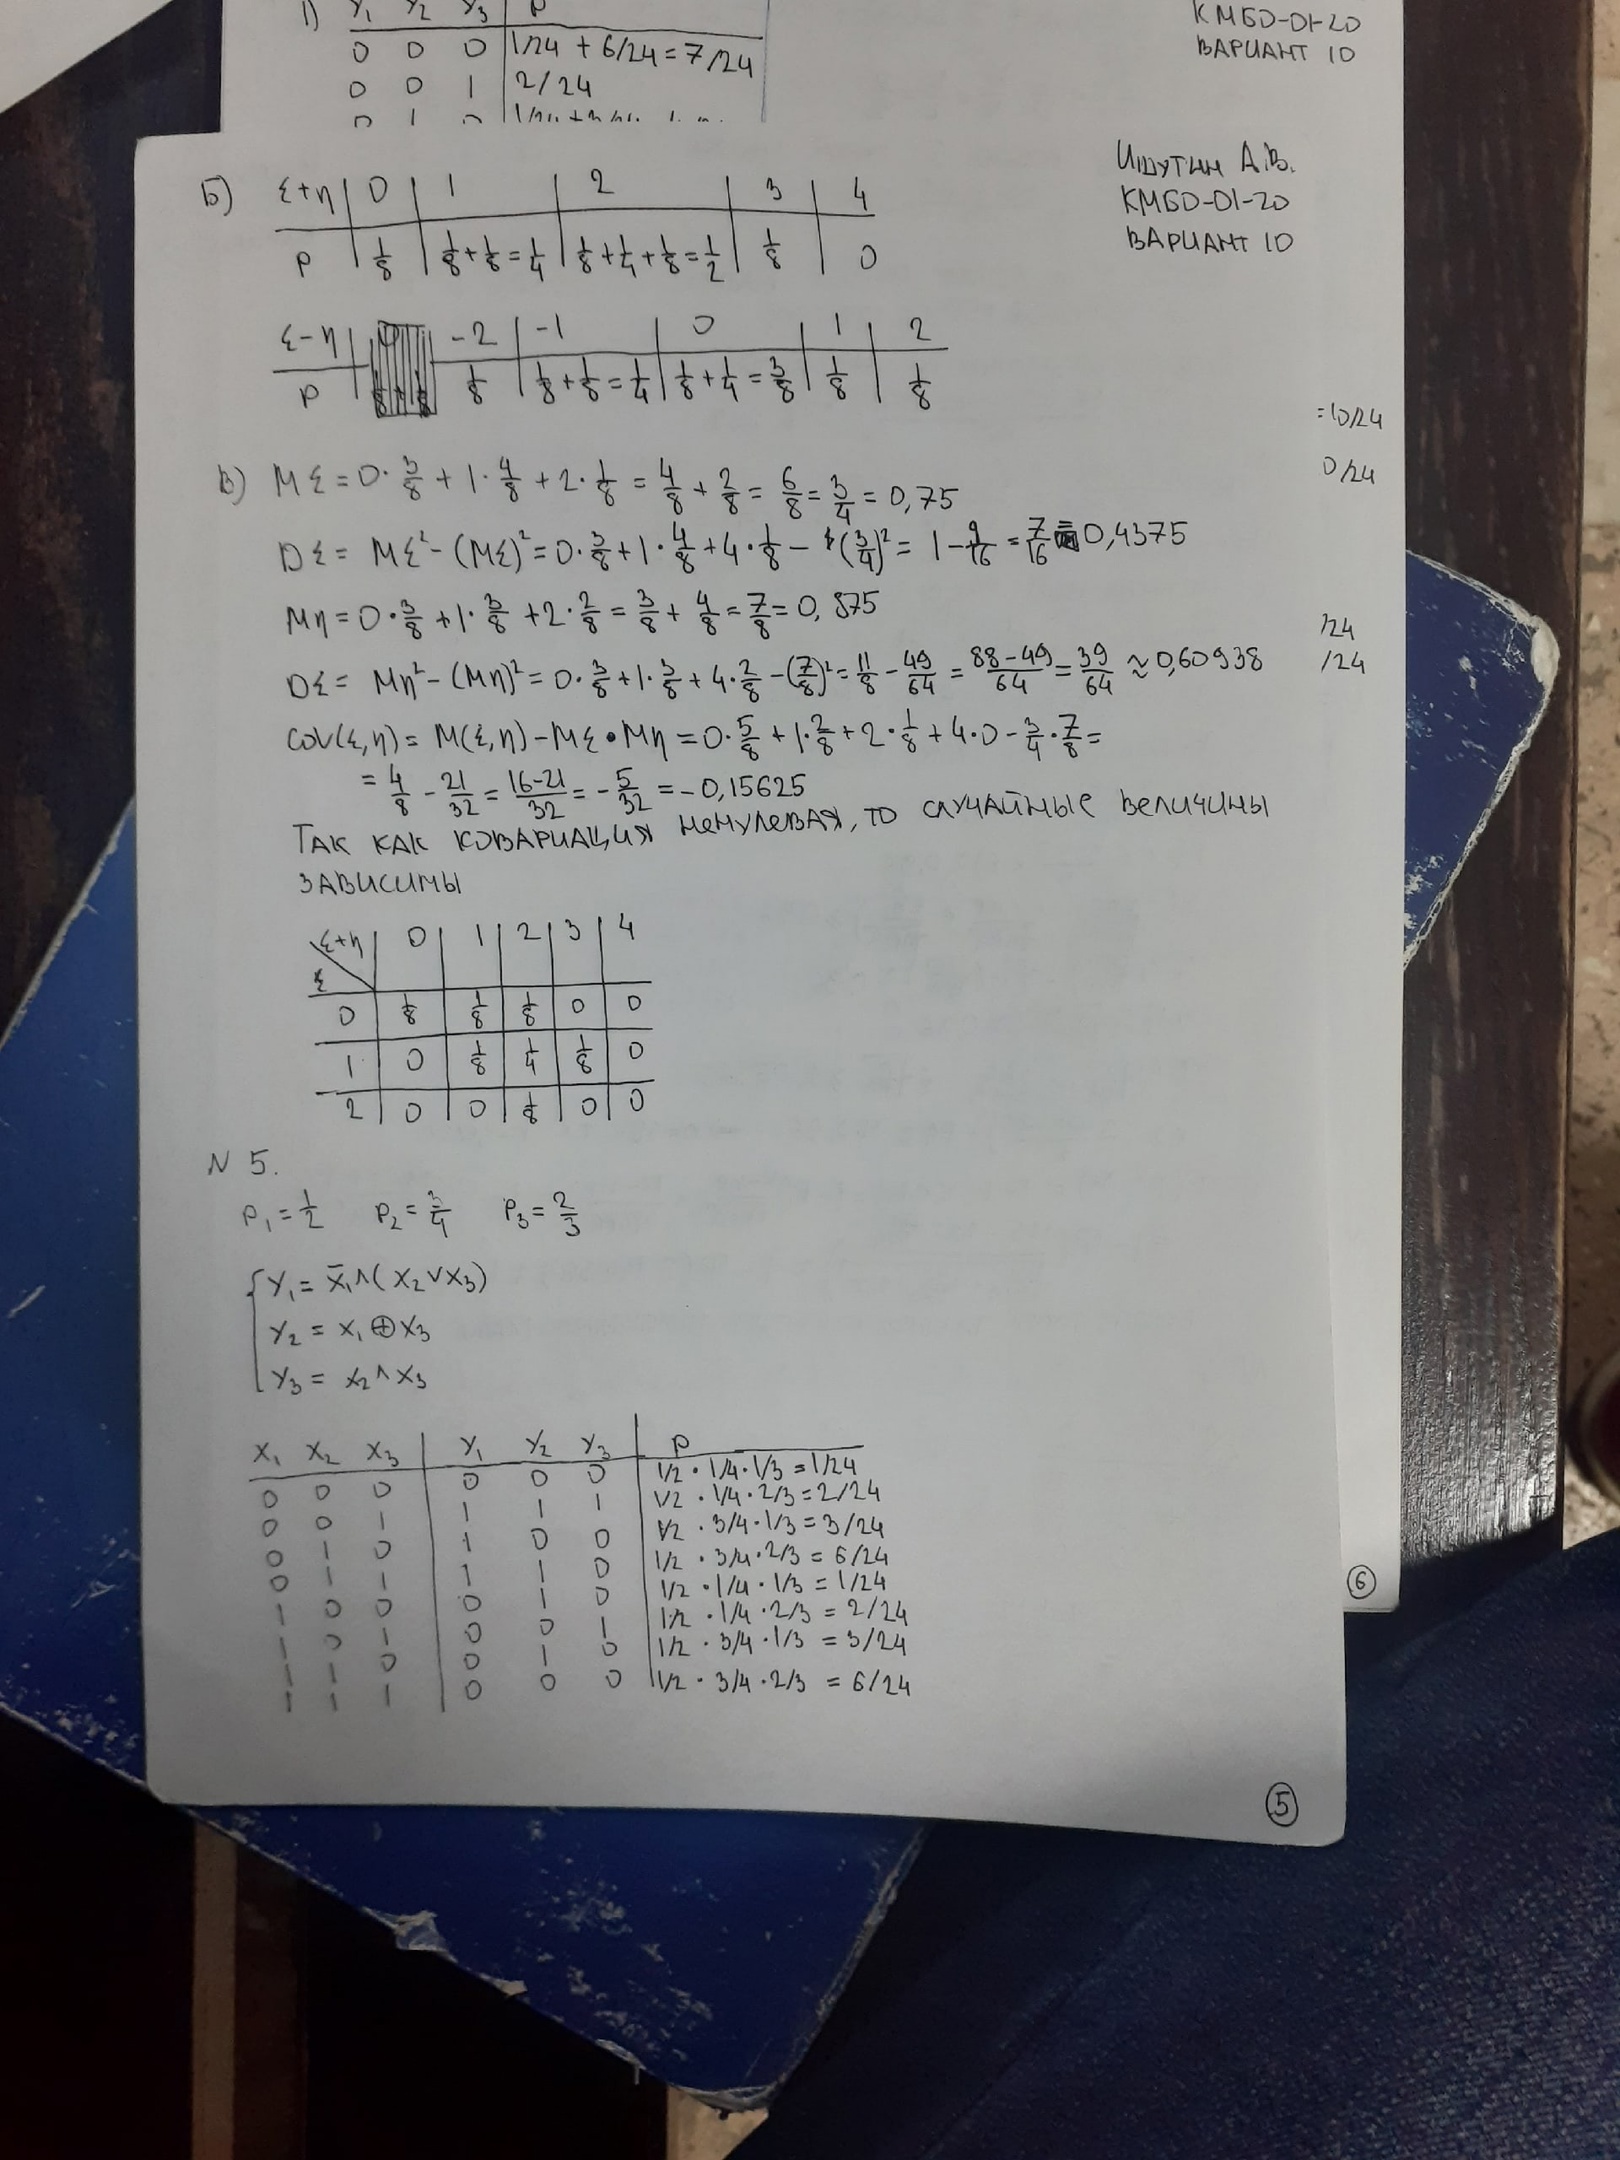 1) Y₁ Y₂ Y₃ | P
0 0 0 | 1/24 + 6/24 = 7/24
0 0 1 | 2/24
0 1 0
КМБО-01-20
ВАРИАНТ 10
Ишутин А.В.
КМБО-01-20
ВАРИАНТ 10
Б) ξ+η | 0 | 1 | 2 | 3 | 4
P | 1/8 | 1/8 + 1/8 = 1/4 | 1/8 + 1/4 + 1/8 = 1/2 | 1/8 | 0
ξ-η | -2 | -1 | 0 | 1 | 2
P | 1/8 | 1/8 + 1/8 = 1/4 | 1/8 + 1/4 = 3/8 | 1/8 | 1/8
=10/24
0/24
В) Mξ = 0·3/8 + 1·4/8 + 2·1/8 = 4/8 + 2/8 = 6/8 = 3/4 = 0,75
Dξ = Mξ² - (Mξ)² = 0·3/8 + 1·4/8 + 4·1/8 - (3/4)² = 1 - 9/16 = 7/16 = 0,4375
Mη = 0·3/8 + 1·3/8 + 2·2/8 = 3/8 + 4/8 = 7/8 = 0,875
/24
Dξ = Mη² - (Mη)² = 0·3/8 + 1·3/8 + 4·2/8 - (7/8)² = 11/8 - 49/64 = 88-49/64 = 39/64 ≈ 0,60938
/24
cov(ξ,η) = M(ξ,η) - Mξ•Mη = 0·5/8 + 1·2/8 + 2·1/8 + 4·0 - 3/4·7/8 =
= 4/8 - 21/32 = 16-21/32 = -5/32 = -0,15625
ТАК КАК КОВАРИАЦИЯ НЕНУЛЕВАЯ, ТО СЛУЧАЙНЫЕ ВЕЛИЧИНЫ
ЗАВИСИМЫ
ξ+η | 0 | 1 | 2 | 3 | 4
ξ
0 | 1/8 | 1/8 | 1/8 | 0 | 0
1 | 0 | 1/8 | 1/4 | 1/8 | 0
2 | 0 | 0 | 1/8 | 0 | 0
N 5.
P₁ = 1/2 P₂ = 3/4 P₃ = 2/3
Y₁ = x̄₁∧(x₂∨x₃)
Y₂ = x₁⊕x₃
Y₃ = x₂∧x₃
X₁ X₂ X₃ | Y₁ Y₂ Y₃ | P
0 0 0 | 0 0 0 | 1/2 · 1/4 · 1/3 = 1/24
0 0 1 | 1 1 1 | 1/2 · 1/4 · 2/3 = 2/24
0 1 0 | 1 0 0 | 1/2 · 3/4 · 1/3 = 3/24
0 1 1 | 1 1 0 | 1/2 · 3/4 · 2/3 = 6/24
1 0 0 | 0 1 0 | 1/2 · 1/4 · 1/3 = 1/24
1 0 1 | 0 0 1 | 1/2 · 1/4 · 2/3 = 2/24
1 1 0 | 0 1 0 | 1/2 · 3/4 · 1/3 = 3/24
1 1 1 | 0 0 0 | 1/2 · 3/4 · 2/3 = 6/24
6
5